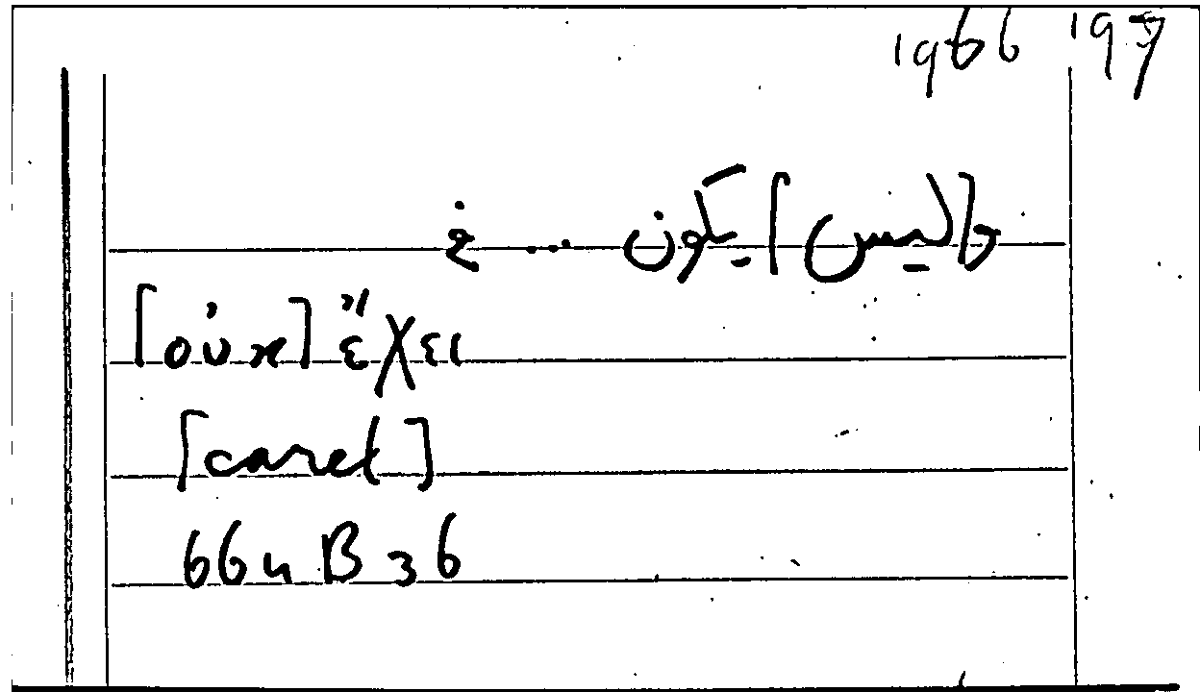 1966 197
[ليس] يكون ... خ
[οὐκ] ἔχει
[caret]
664 B 36